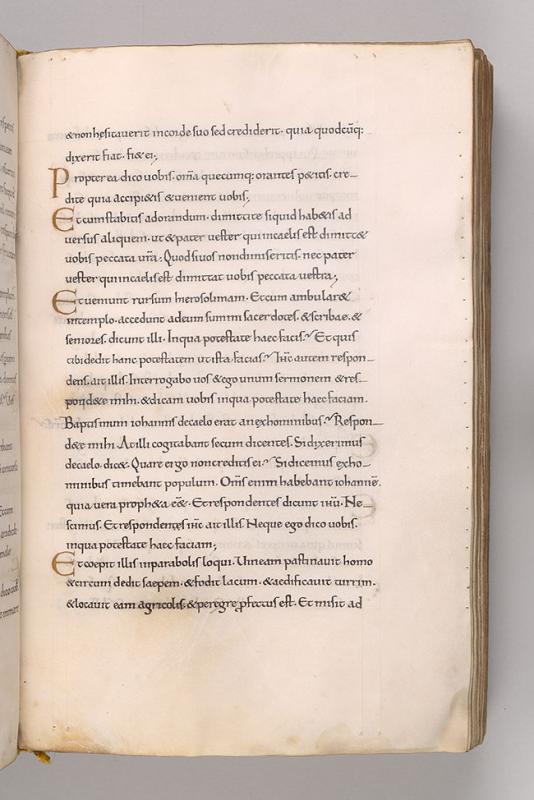 & non hesitaverit in corde suo sed crediderit · quia quodcūq;
dixerit fiat · fi& ei;
Propterea dico vobis · om̄a quecumq; orantes p&itis · cre-
dite quia accipi&is & venient vobis;
Et cum stabitis ad orandum · dimittite siquid hab&is ad
versus aliquem · ut & pater vester qui in caelis est dimitt&
vobis peccata vr̄a · Quod si vos non dimiseritis · nec pater
vester qui in caelis est dimittat vobis peccata vestra;
Et veniunt rursum hierosolimam · Et cum ambular&
in templo · accedunt ad eum summi sacerdotes · & scribae · &
seniores · dicunt illi · In qua potestate haec facis · Et quis
tibi dedit hanc potestatem ut ista facias · ih̄c autem respon-
dens · ait illis · Interrogabo vos & ego unum sermonem & res-
pond&e mihi · & dicam vobis in qua potestate haec faciam ·
Baptismum iohannis de caelo erat an ex hominibus · Respon-
d&e mihi · At illi cogitabant secum dicentes · Si dixerimus
de caelo · dic& · Quare ergo non credistis ei · Si dicemus ex ho-
minibus timebant populum · Om̄s enim habebant iohannē ·
quia vera proph&a eē& · Et respondentes dicunt ih̄u · Ne-
scimus · Et respondens ih̄c ait illis · Neque ego dico vobis ·
in qua potestate haec faciam;
Et coepit illis in parabolis loqui · Vineam pastinavit homo
& circum dedit saepem · & fodit lacum · & aedificavit turrim ·
& locavit eam agricolis · & peregre ꝓfectus est · Et misit ad